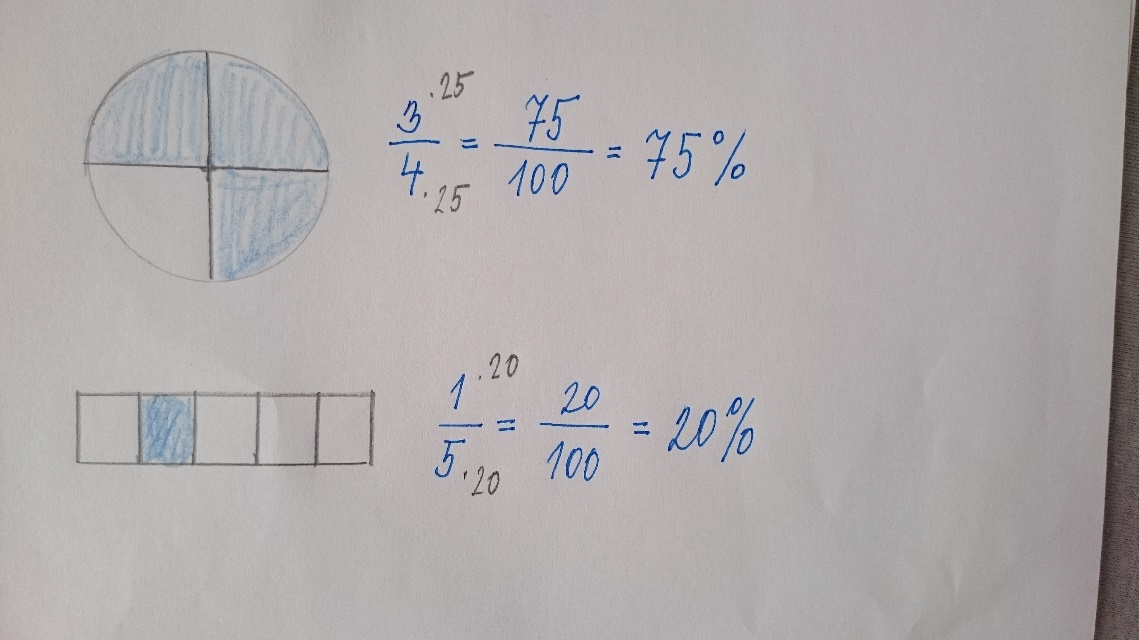 3·25/4·25 = 75/100 = 75%
1·20/5·20 = 20/100 = 20%